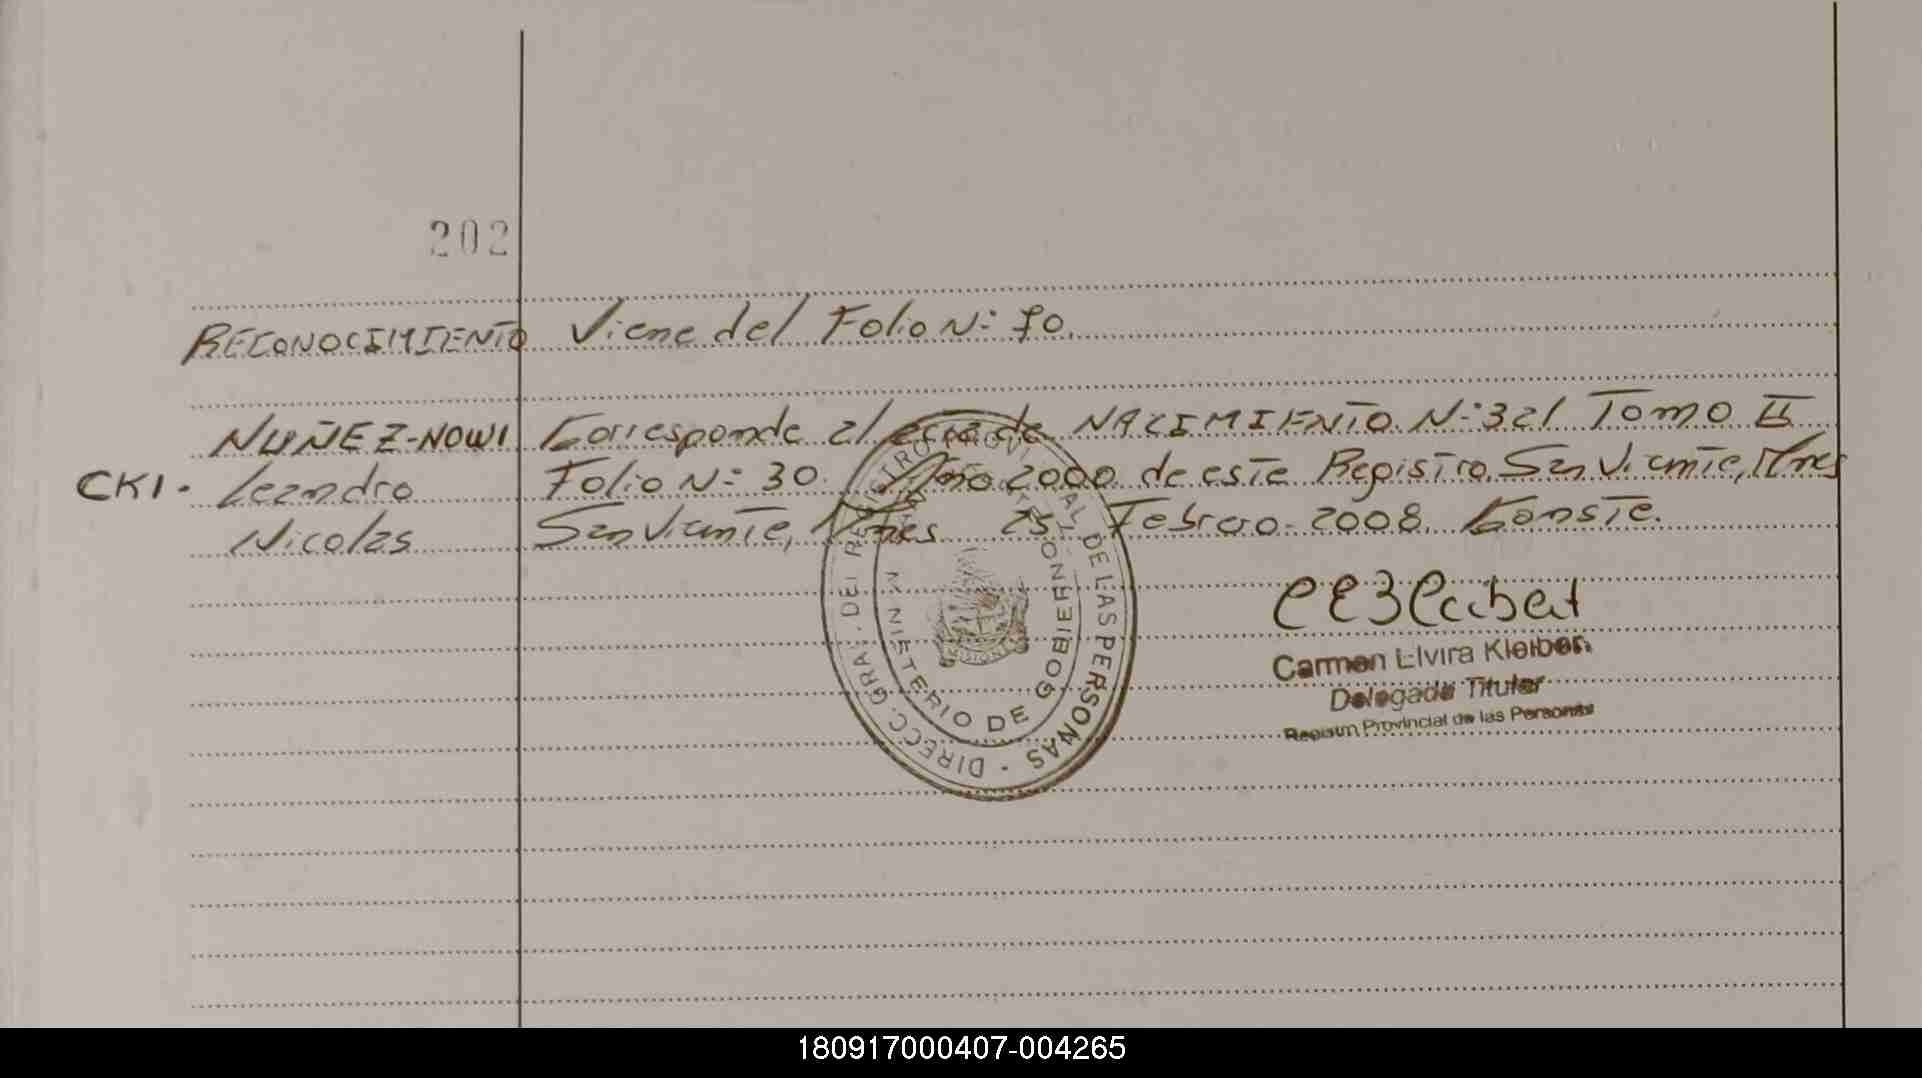 202
RECONOCIMIENTO Viene del Folio N: 70.
NUÑEZ-NOWI Corresponde al acta de NACIMIENTO N: 321 Tomo II
CKI. Leandro Folio N: 30. Año 2000 de este Registro. San Vicente, Mnes
Nicolas San Vicente, Mnes 25 Febrero 2008 Conste.
DIRECC. GRAL. DEL REGISTRO PROVINCIAL DE LAS PERSONAS -
MINISTERIO DE GOBIERNO
MISIONES
Carmen Elvira Kleibert
Delegada Titular
Registro Provincial de las Personas
180917000407-004265